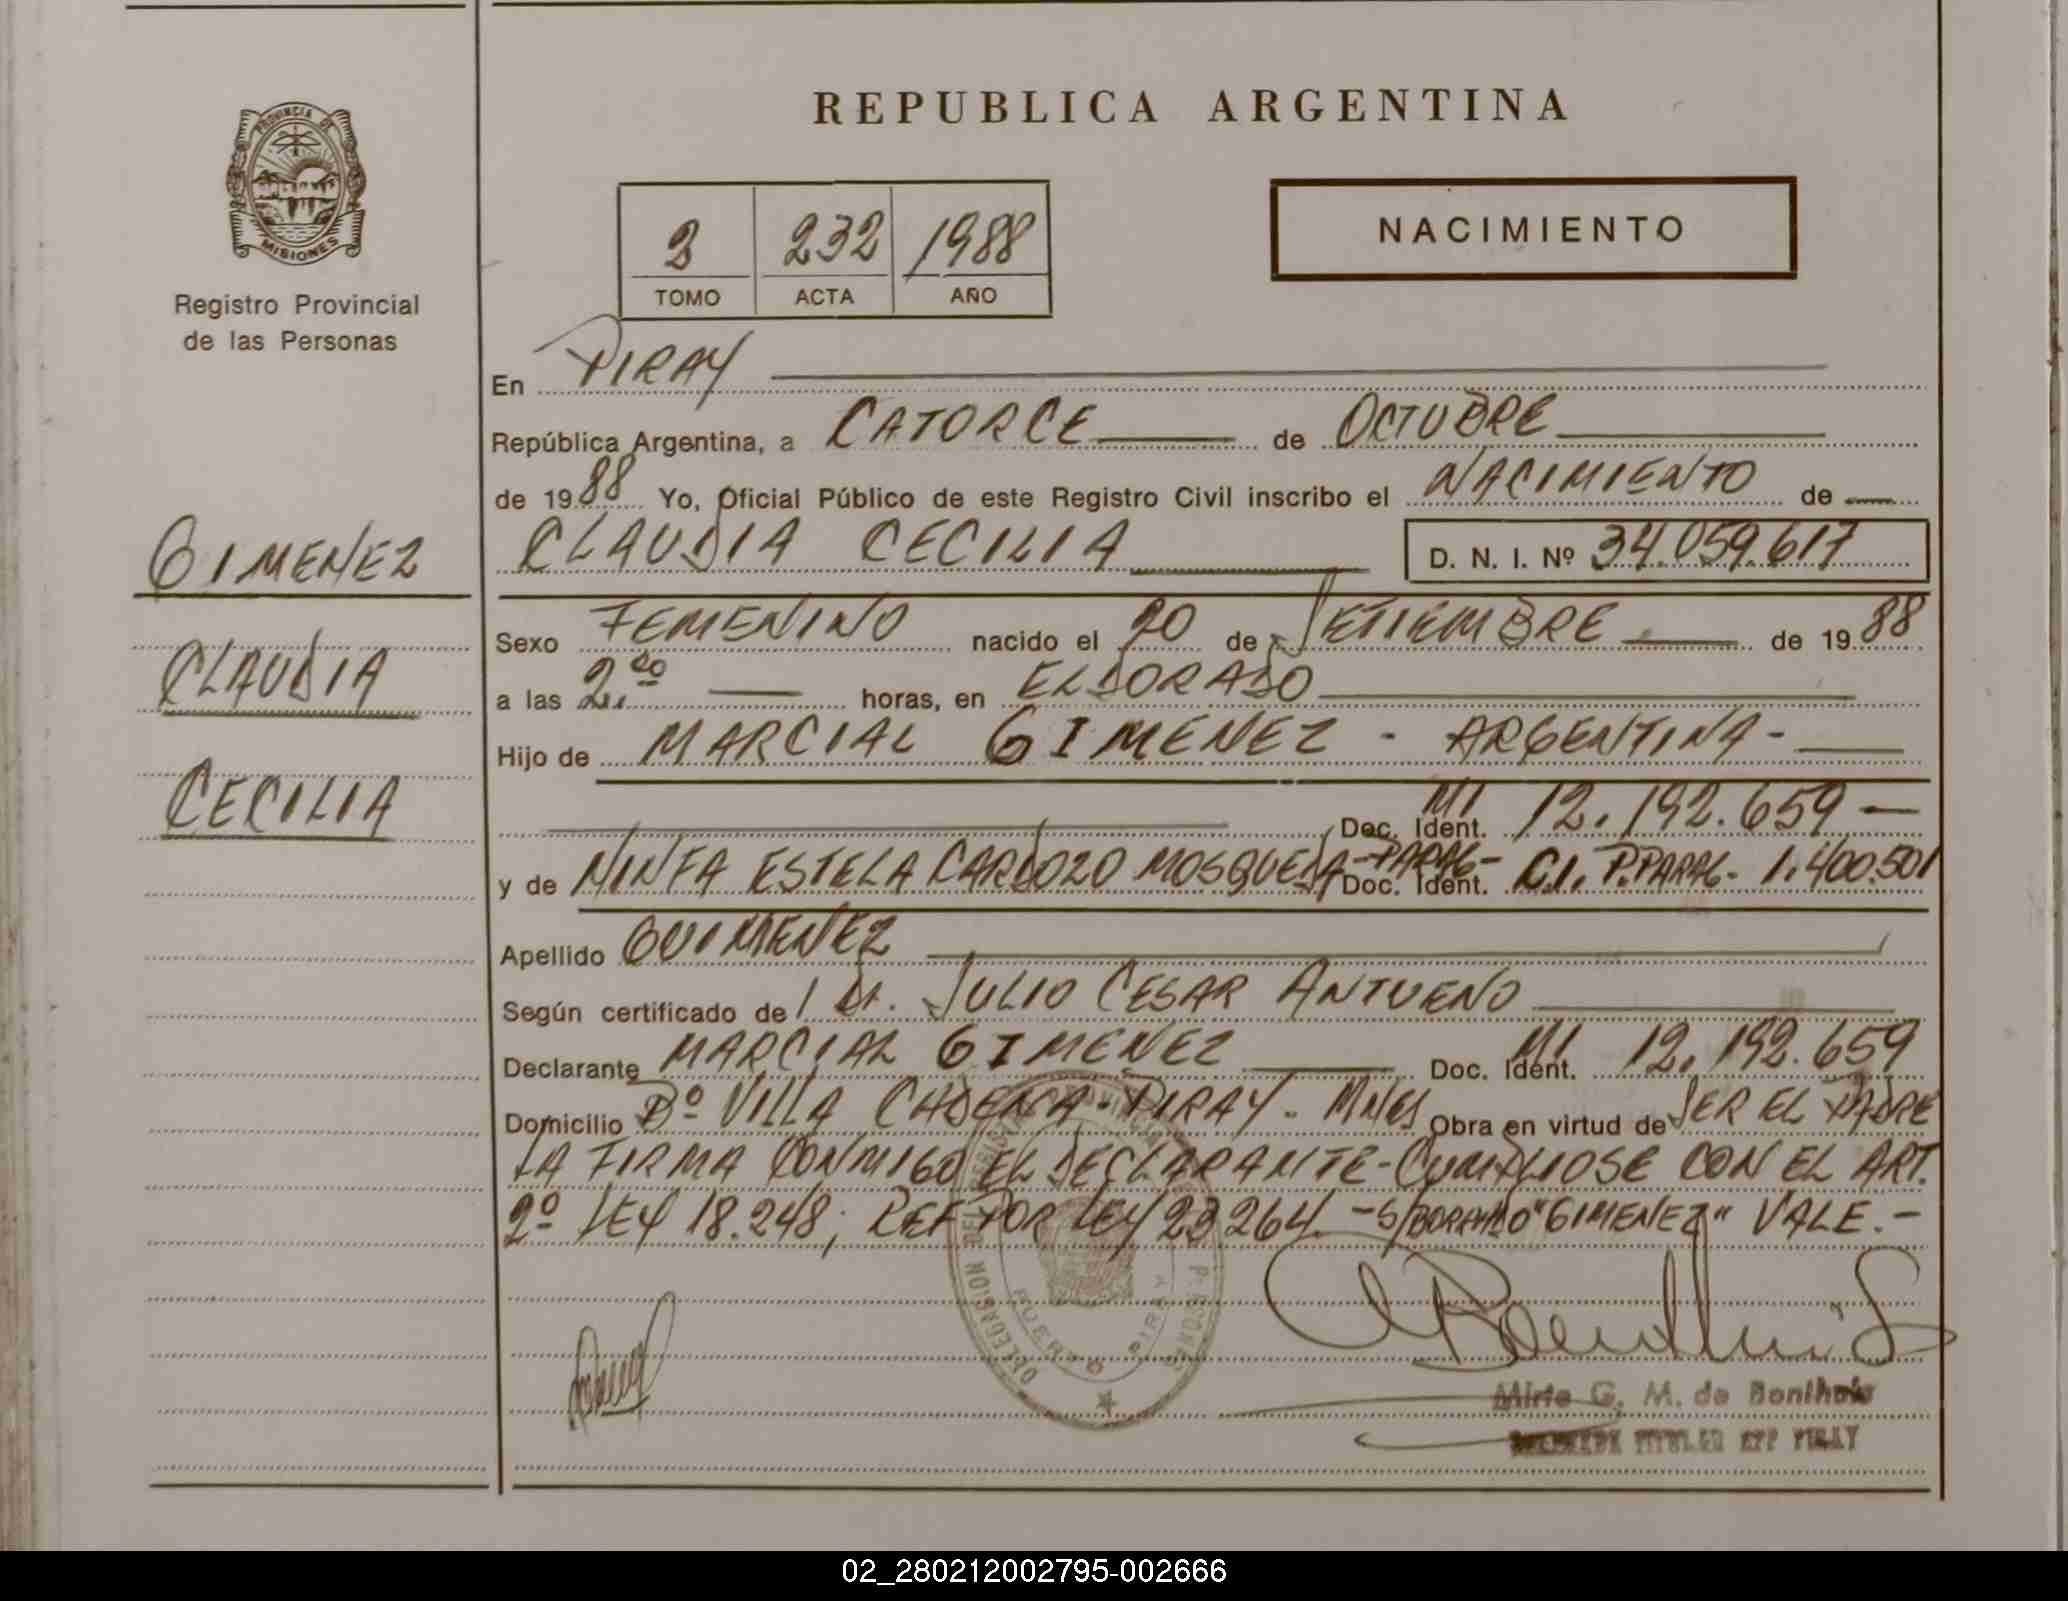 REPUBLICA ARGENTINA
PROVINCIA DE
MISIONES
Registro Provincial
de las Personas
2 232 1988
TOMO ACTA AÑO
NACIMIENTO
En PIRAY
República Argentina, a CATORCE de OCTUBRE
de 1988 Yo, Oficial Público de este Registro Civil inscribo el NACIMIENTO de
GIMENEZ
CLAUDIA
CECILIA
CLAUDIA CECILIA D. N. I. Nº 34.059.617
Sexo FEMENINO nacido el 20 de SETIEMBRE de 1988
a las 2.00 horas, en ELDORADO
Hijo de MARCIAL GIMENEZ - ARGENTINA-
Doc. Ident. MI 12.192.659 —
y de NINFA ESTELA CARDOZO MOSQUEDA -PARAG- Doc. Ident. C.I. P.PARAG- 1.400.501
Apellido GUIMENEZ
Según certificado de Dr. JULIO CESAR ANTUENO
Declarante MARCIAL GIMENEZ Doc. Ident. MI 12.192.659
Domicilio Bº VILLA CADENA-PIRAY- MNES Obra en virtud de SER EL PADRE
LA FIRMA CONMIGO EL DECLARANTE-CUMPLIOSE CON EL ART.
2º LEY 18.248, REF POR LEY 23.264.-S/BORRADO "GIMENEZ" VALE.-
DELEGACION DEL REGISTRO PROVINCIAL
PUERTO PIRAY
Mirta G. M. de
TITULAR RPP PIRAY
02_280212002795-002666